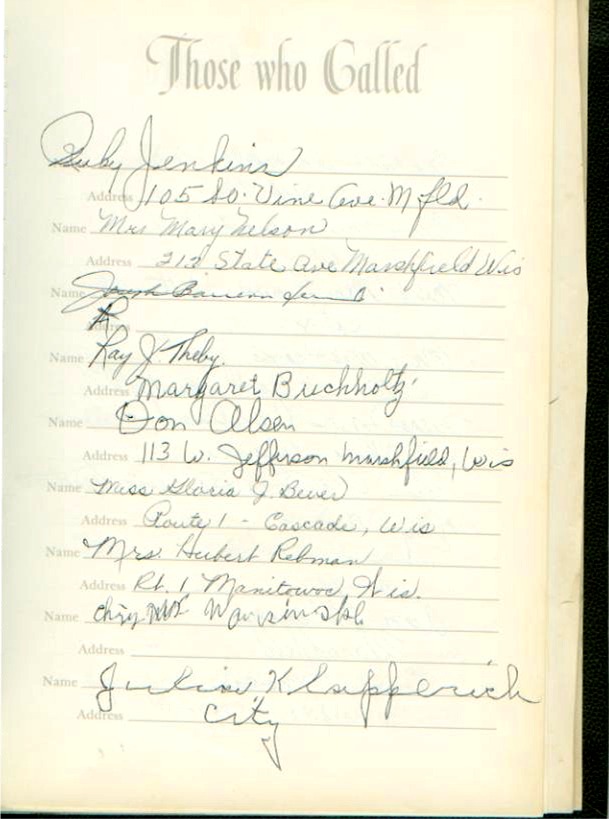 Those who Called
Ruby Jenkins
Address 105 So. Vine Ave. Mfld.
Name Mrs Mary Nelson
Address 212 State Ave Marshfield Wis
Name
Address
Name Ray J. Theby.
Address Margaret Buchholtz
Name Don Olsen
Address 113 W. Jefferson Marshfield, Wis
Name Miss Gloria J. Beuer
Address Route 1 - Cascade, Wis
Name Mrs. Hubert Rebman
Address Rt. 1 Manitowoc Wis.
Name
Address
Name Klapperich
Address City